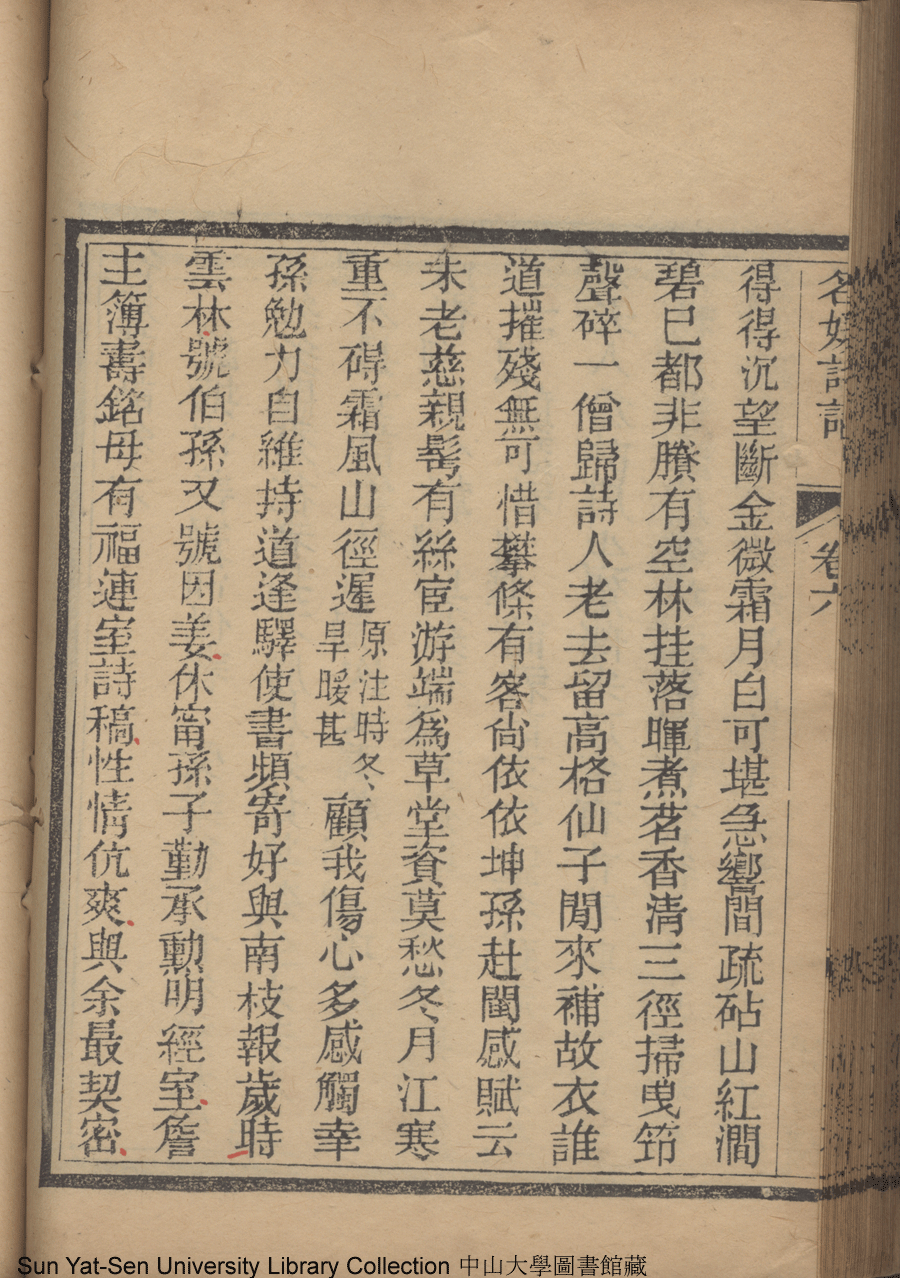 名媛詩話 卷六
得得沉望斷金微霜月白可堪急響間疏砧山紅澗
碧已都非賸有空林挂落暉煮茗香清三徑掃曳笻
聲碎一僧歸詩人老去留高格仙子閒來補故衣誰
道摧殘無可惜攀條有客尙依依坤孫赴閩感賦云
未老慈親髩有絲宦游端爲草堂資莫愁冬月江寒
重不碍霜風山徑遲原注時冬旱暖甚顧我傷心多感觸幸
孫勉力自維持道逢驛使書頻寄好與南枝報歲時
雲林號伯孫又號因姜休甯孫子勤承勳明經室詹
主簿壽銘母有福連室詩稿性情伉爽與余最契密
Sun Yat-Sen University Library Collection 中山大學圖書館藏